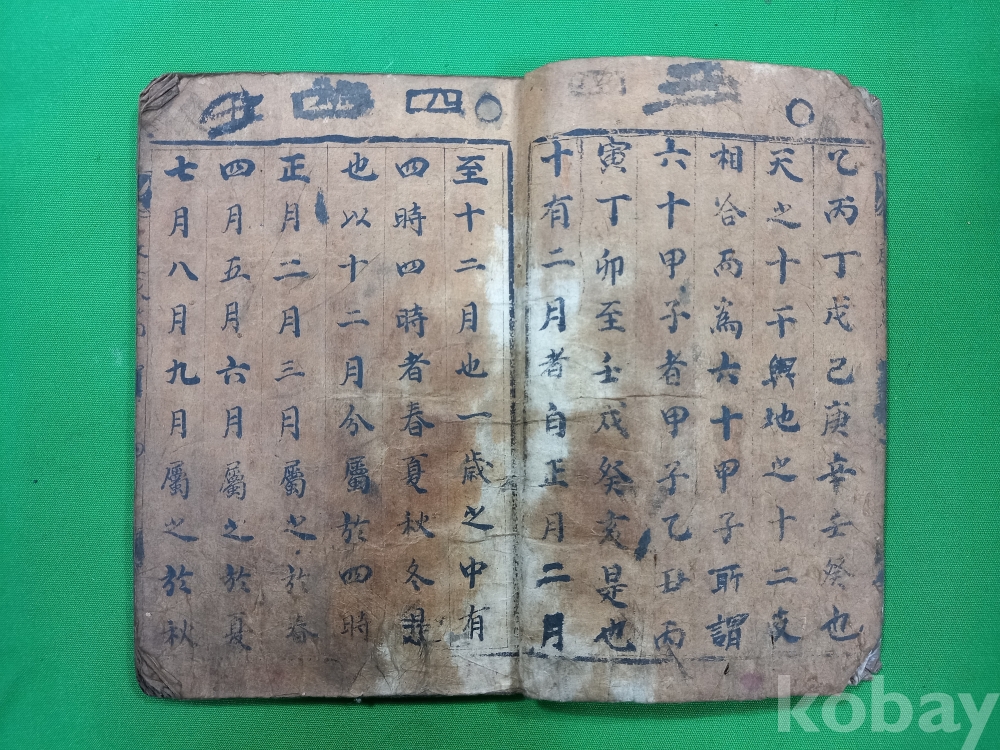 乙丙丁戊己庚辛壬癸也
天之十干與地之十二支
相合而爲六十甲子所謂
六十甲子者甲子乙丑丙
寅丁卯至壬戌癸亥是也
十有二月者自正月二月
至十二月也一歲之中有
四時四時者春夏秋冬是
也以十二月分屬於四時
正月二月三月屬之於春
四月五月六月屬之於夏
七月八月九月屬之於秋
四
kobay